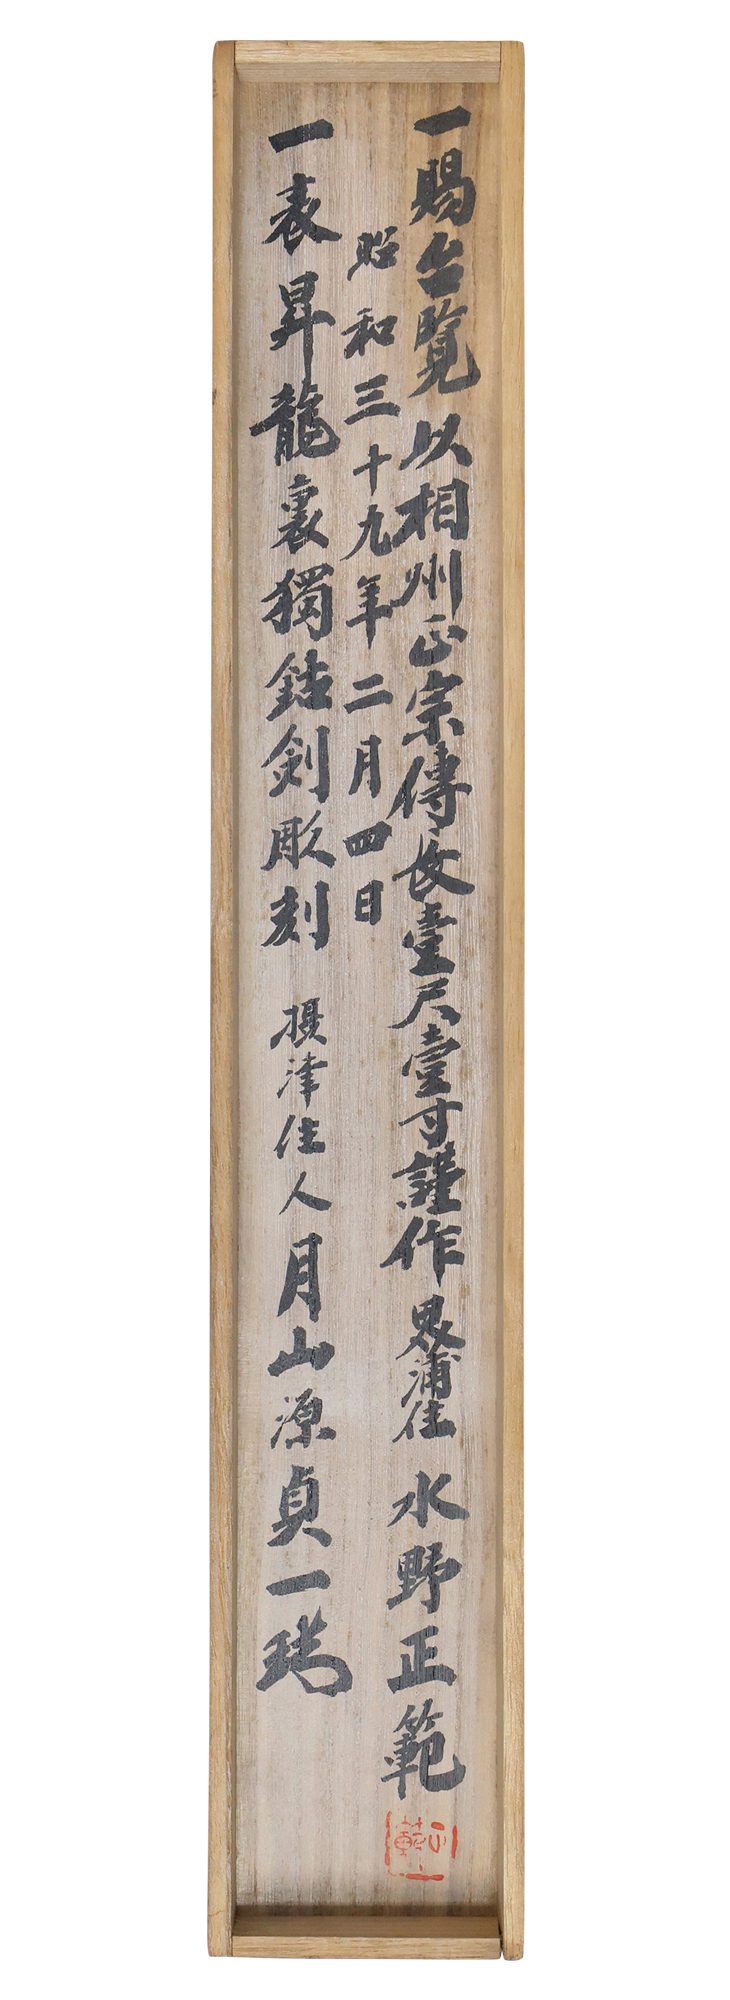 一賜台覧以相州正宗傳長壹尺壹寸謹作 思浦住 水野正範
昭和三十九年二月四日
一表昇龍裏獨鈷剣彫刻 摂津住人月山源貞一
正範